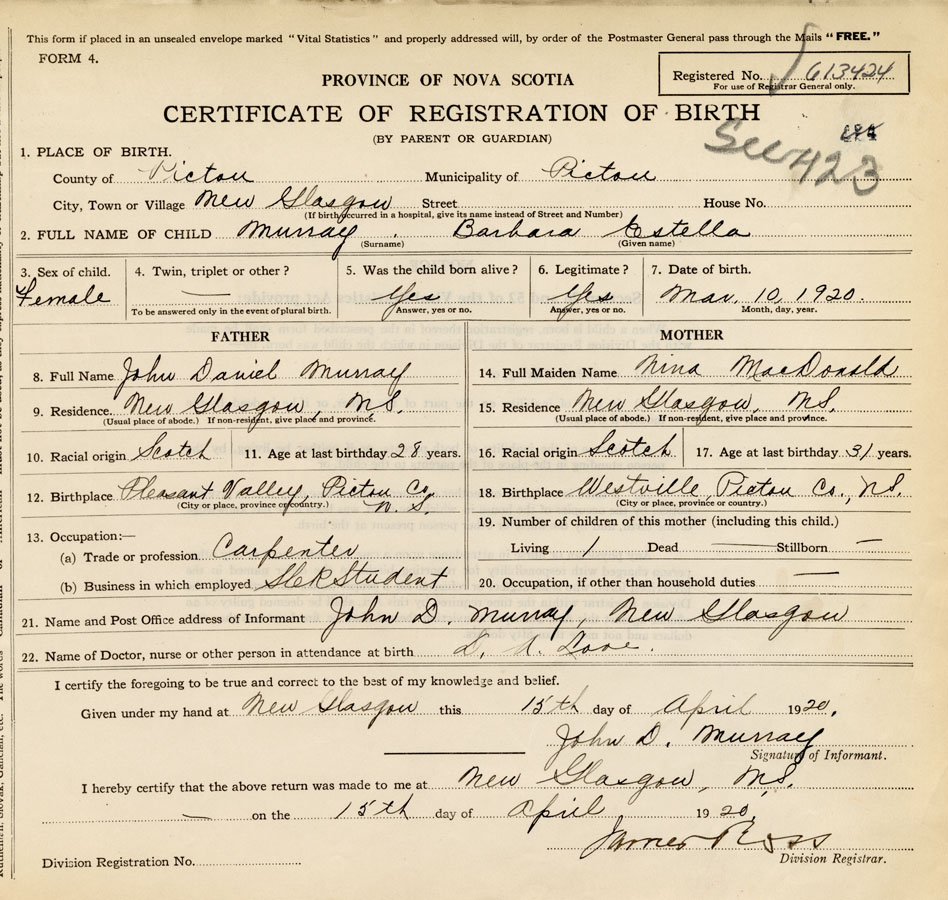 This form if placed in an unsealed envelope marked "Vital Statistics" and properly addressed will, by order of the Postmaster General pass through the Mails "FREE."
FORM 4.
PROVINCE OF NOVA SCOTIA
Registered No. 613424
For use of Registrar General only.
CERTIFICATE OF REGISTRATION OF BIRTH
(BY PARENT OR GUARDIAN)
See 423
1. PLACE OF BIRTH.
County of Pictou Municipality of Pictou
City, Town or Village New Glasgow Street House No.
(If birth occurred in a hospital, give its name instead of Street and Number)
2. FULL NAME OF CHILD Murray Barbara Estella
(Surname) (Given name)
3. Sex of child. 4. Twin, triplet or other? 5. Was the child born alive? 6. Legitimate? 7. Date of birth.
Female — Yes Yes Mar. 10, 1920.
To be answered only in the event of plural birth. Answer, yes or no. Answer, yes or no. Month, day, year.
FATHER
8. Full Name John Daniel Murray
9. Residence. New Glasgow, N.S.
(Usual place of abode.) If non-resident, give place and province.
10. Racial origin Scotch 11. Age at last birthday 28 years.
12. Birthplace Pleasant Valley, Pictou Co. N.S.
(City or place, province or country.)
13. Occupation:—
(a) Trade or profession Carpenter
(b) Business in which employed Student
MOTHER
14. Full Maiden Name Nina MacDonald
15. Residence New Glasgow, N.S.
(Usual place of abode.) If non-resident, give place and province.
16. Racial origin Scotch 17. Age at last birthday 31 years.
18. Birthplace Westville, Pictou Co., N.S.
(City or place, province or country.)
19. Number of children of this mother (including this child.)
Living 1 Dead — Stillborn —
20. Occupation, if other than household duties —
21. Name and Post Office address of Informant John D. Murray, New Glasgow
22. Name of Doctor, nurse or other person in attendance at birth
I certify the foregoing to be true and correct to the best of my knowledge and belief.
Given under my hand at New Glasgow this 15th day of April 1920.
John D. Murray
Signature of Informant.
I hereby certify that the above return was made to me at New Glasgow, N.S.
— on the 15th day of April 1920.
James Ross
Division Registrar.
Division Registration No.